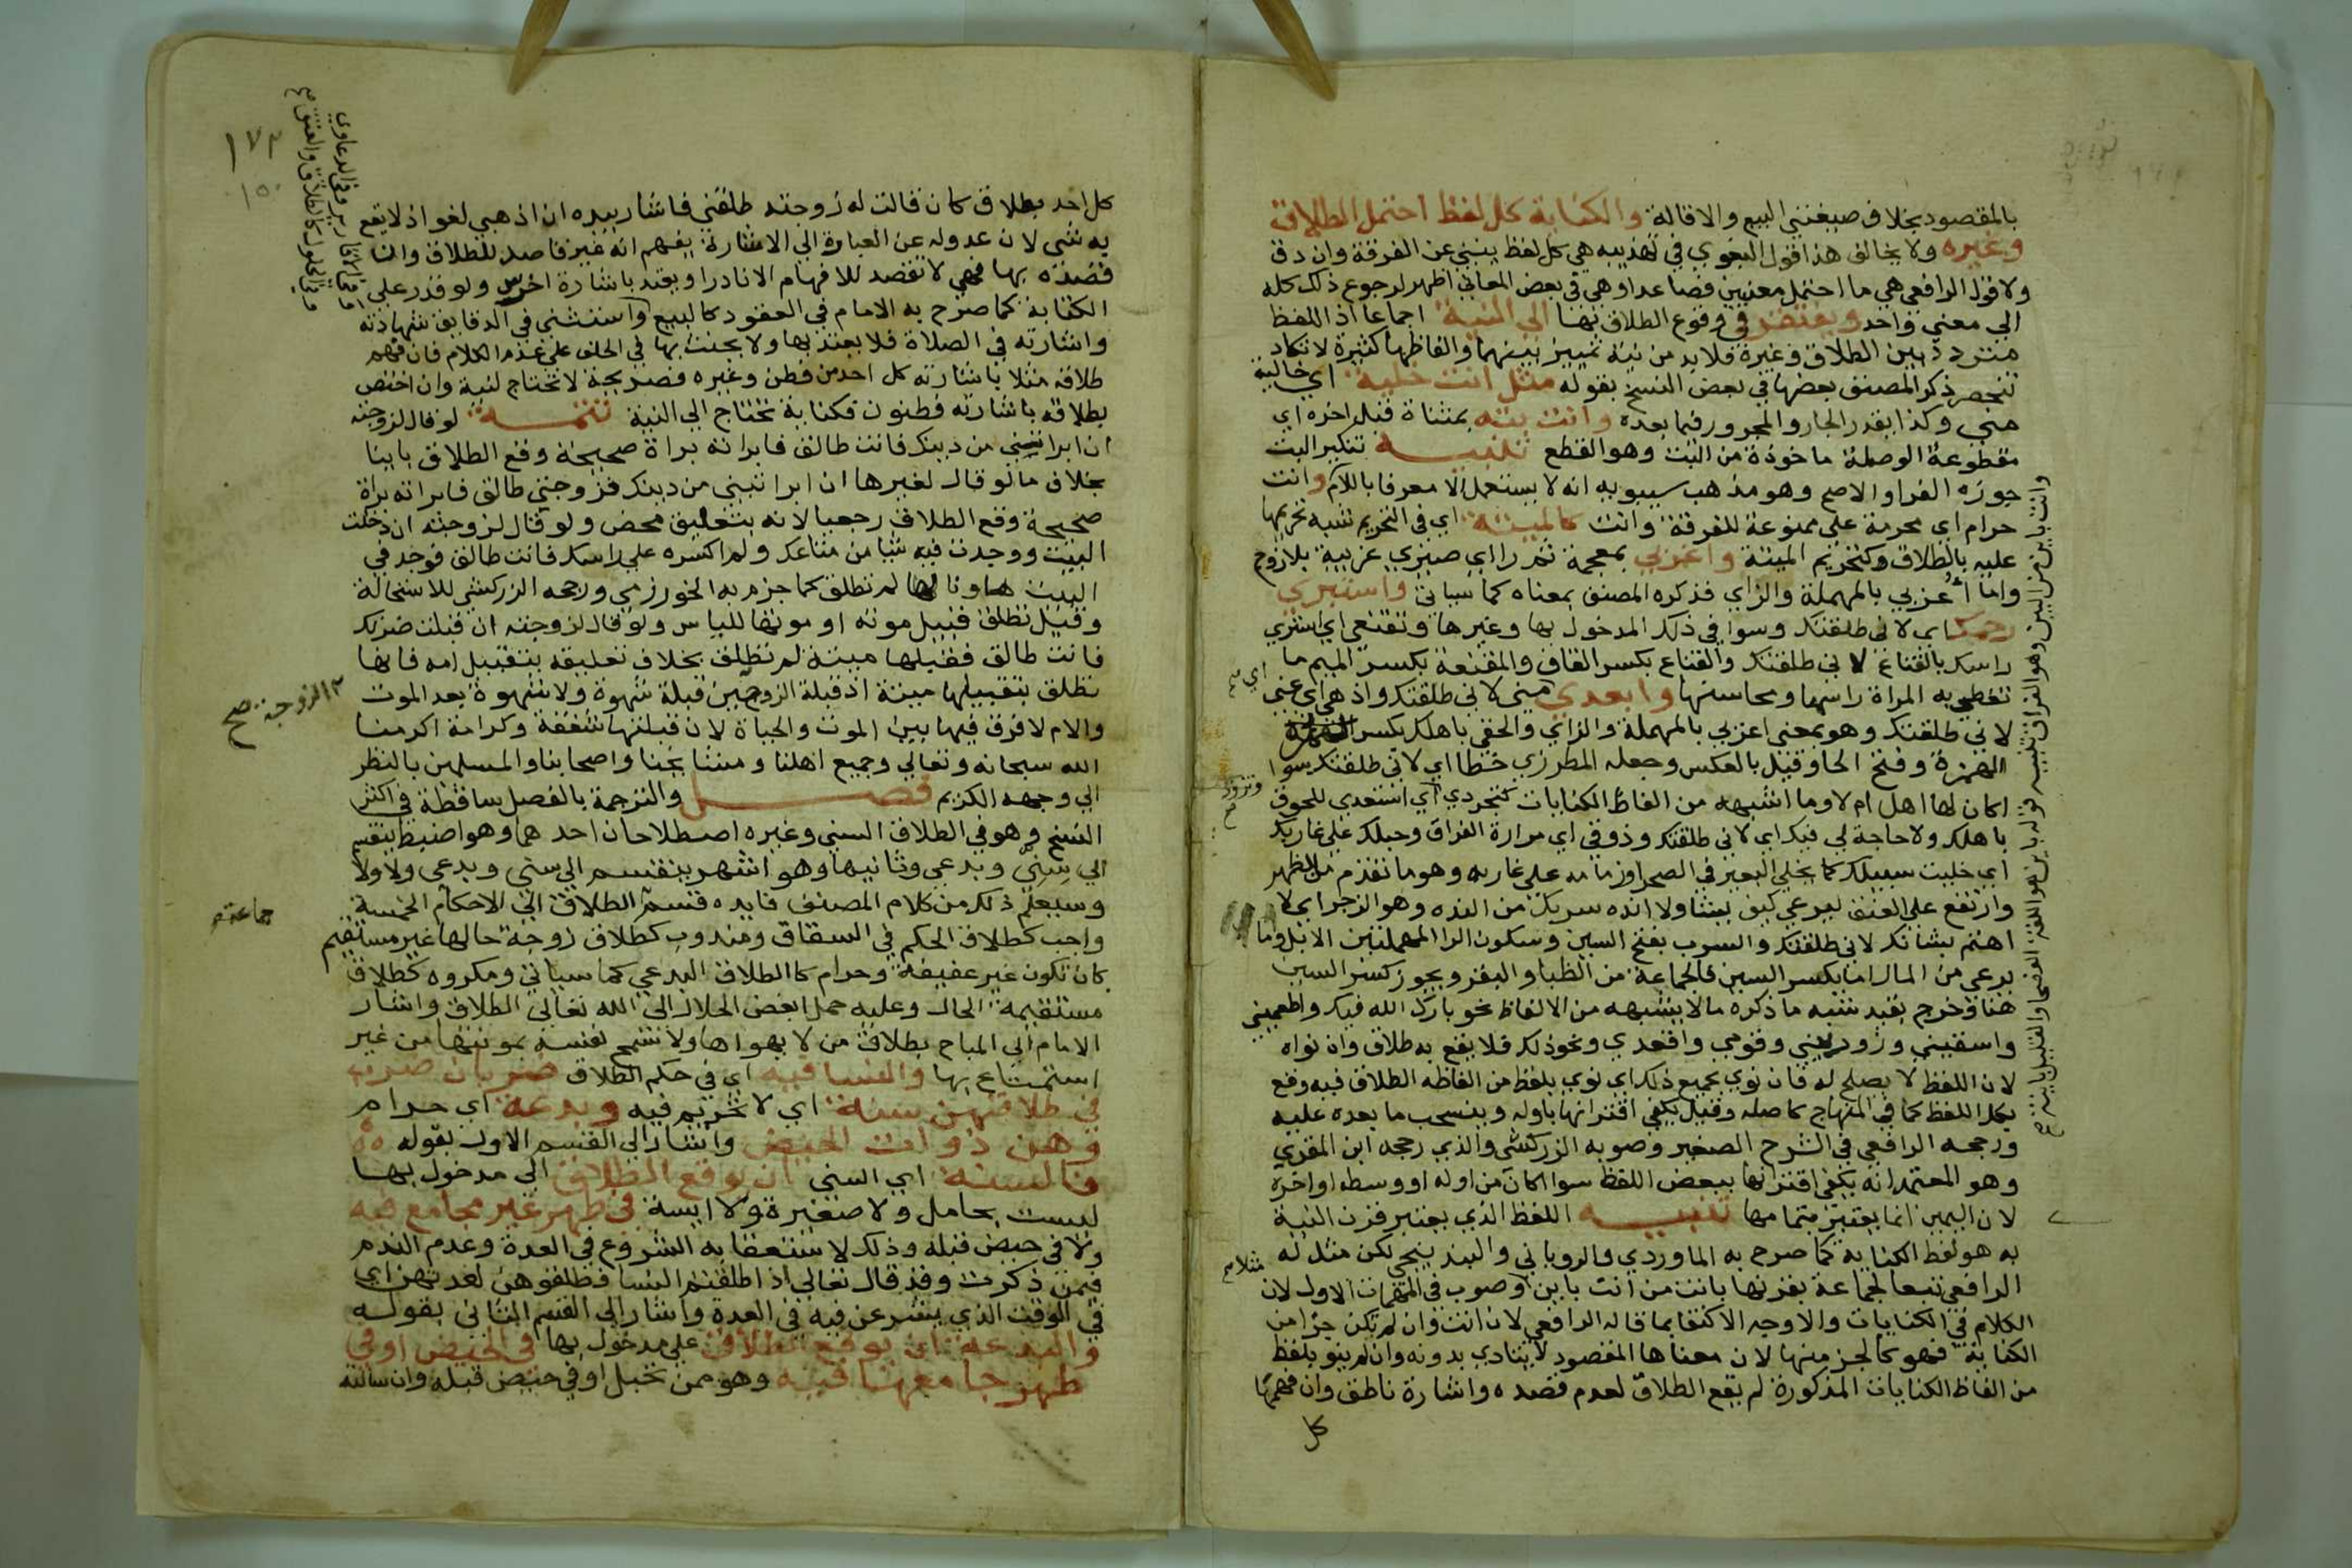 بالمقصود بخلاف صيغتي البيع والاقالة والكناية كل لفظ احتمل الطلاق
وغيره ولا يخالف هذا قول البغوي في تهذيبه هي كل لفظ ينبي عن الفرقة وان دق
ولا قول الرافعي هي ما احتمل معنيين فصاعدا وهي في بعض المعاني اظهر لرجوع ذلك كله
الي معني واحد ويفتقر في وقوع الطلاق بها الي النية اجماعا اذ اللفظ
متردد بين الطلاق وغيره فلا بد من نية تمييز بينهما والفاظها كثيرة لا تكاد
تنحصر ذكر المصنف بعضها في بعض النسخ بقوله مثل انت خلية اي خالية
مني وكذا يقدر الجار والمجرور فيما بعده وانت بتة بمثناة قبل اخره اي
مقطوعة الوصلة ماخوذة من البت وهو القطع تنبيه تنكير البت
جوزه الفرا والاصح وهو مذهب سيبويه انه لا يستعمل الا معرفا باللام وانت
حرام اي محرمة علي ممنوعة للفرقة وانت كالميتة اي في التحريم شبه تحريمها
عليه بالطلاق كتحريم الميتة واغربي بمعجمة ثم را اي صيري غريبة بلا زوج
واما اعزبي بالمهملة والزاي فذكره المصنف بمعناه كما سياتي واستبري
رحمك اي لاني طلقتك وسوا في ذلك المدخول بها وغيرها وتقنعي اي استري
راسك بالقناع لاني طلقتك والقناع بكسر القاف والمقنعة بكسر الميم ما
تغطي به المراة راسها ومحاسنها وابعدي اي مني لاني طلقتك واذهبي اي عني
لاني طلقتك وهو بمعني اعزبي بالمهملة والزاي والحقي باهلك بكسر
الهمزة وفتح الحا وقيل بالعكس وجعله المطرزي خطا اي لاني طلقتك سوا
اكان لها اهل ام لا وما اشبهه من الفاظ الكنايات كتجردي وتزودي اي استعدي للحوق
باهلك ولا حاجة لي فيك اي لاني طلقتك وذوقي اي مرارة الفراق وحبلك علي غاربك
اي خليت سبيلك كما يخلي البعير في الصحرا وزمامه علي غاربه وهو ما تقدم من الظهر
وارتفع علي العنق ليرعي كيف يشا ولا انده سربك من النده وهو الزجر اي لا
اهتم بشانك لاني طلقتك والسرب بفتح السين وسكون الرا المهملتين الابل وما
يرعي من المال اما بكسر السين فالجماعة من الظبا والبقر ويجوز كسر السين
هنا وخرج بقيد شبه ما ذكره مالا يشبهه من الالفاظ نحو بارك الله فيك واطعميني
واسقيني وزوديني وقومي واقعدي ونحو ذلك فلا يقع به طلاق وان نواه
لان اللفظ لا يصلح له فان نوي بجميع ذلك اي نوي بلفظ من الفاظه الطلاق فيه وقع
بكل اللفظ كما في المنهاج كاصله وقيل يكفي اقترانها باوله وينسحب ما بعده عليه
ورجحه الرافعي في الشرح الصغير وصوبه الزركشي والذي رجحه ابن المقري
وهو المعتمد انه يكفي اقترانها ببعض اللفظ سوا اكان من اوله او وسطه او اخره
لان اليمين انما يعتبر بتمامها تنبيه اللفظ الذي يعتبر قرن النية
به هو لفظ الكناية كما صرح به الماوردي والروياني والبندنيجي لكن مثل له
الرافعي تبعا لجماعة بقرنها بانت من انت باين وصوب في المهمات الاول لان
الكلام في الكنايات والاوجه الاكتفا بما قاله الرافعي لان انت وان لم تكن جزا من
الكناية فهو كالجز منها لان معناها المقصود لا يتادي بدونه وان لم ينو بلفظ
من الفاظ الكنايات المذكورة لم يقع الطلاق لعدم قصده واشارة ناطق وان فهمها
كل
مثلا صح
١٧٢
١٥٠
كل احد بطلاق كان قالت له زوجته طلقني فاشار بيده ان اذهبي لغو اذ لا يقع
به شي لان عدوله عن العبارة الي الاشارة يفهم انه غير قاصد للطلاق وان
قصده بها فهي لا تقصد للافهام الا نادرا ويعتد باشارة اخرس ولو قدر علي
الكتابة كما صرح به الامام في العقود كالبيع واستثني في الدقايق شهادته
واشارته في الصلاة فلا يعتد بها ولا يحنث بها في الحلف علي عدم الكلام فان فهم
طلاقه مثلا باشارته كل احد من فطن وغيره فصريحة لا تحتاج لنية وان اختص
بطلاقه باشارته فطنون فكناية تحتاج الي النية تتمة لو قال لزوجته
ان ابراتيني من دينك فانت طالق فابراته براة صحيحة وقع الطلاق باينا
بخلاف ما لو قال لغيرها ان ابراتيني من دينك فزوجتي طالق فابراته براة
صحيحة وقع الطلاق رجعيا لانه بتعليق محض ولو قال لزوجته ان دخلت
البيت ووجدت فيه شيا من متاعك ولم اكسره علي راسك فانت طالق فوجد في
البيت هاونا لها لم تطلق كما جزم به الخوارزمي ورجحه الزركشي للاستحالة
وقيل تطلق قبيل موته او موتها للياس ولو قال لزوجته ان قبلت ضرتك
فانت طالق فقبلها ميتة لم تطلق بخلاف تعليقه بتقبيل امه فانها
تطلق بتقبيلها ميتة اذ قبلة الزوجة قبلة شهوة ولا شهوة بعد الموت
والام لا فرق فيها بين الموت والحياة لان قبلتها شفقة وكرامة اكرمنا
الله سبحانه وتعالي وجميع اهلنا ومشايخنا واصحابنا والمسلمين بالنظر
الي وجهه الكريم فصل والترجمة بالفصل ساقطة في اكثر
النسخ وهو في الطلاق السني وغيره اصطلاحان احدهما وهو اضبط ينقسم
الي سني وبدعي وثانيها وهو اشهر ينقسم الي سني وبدعي ولا ولا
وسيعلم ذلك من كلام المصنف فايدة قسم جماعة الطلاق الي الاحكام الخمسة
واجب كطلاق الحكم في الشقاق ومندوب كطلاق زوجة حالها غير مستقيم
كان تكون غير عفيفة وحرام كالطلاق البدعي كما سياتي ومكروه كطلاق
مستقيمة الحال وعليه حمل ابغض الحلال الي الله تعالي الطلاق واشار
الامام الي المباح بطلاق من لا يهواها ولا تسمح نفسه بمونتها من غير
استمتاع بها والنسا فيه اي في حكم الطلاق ضربان ضرب
في طلاقهن سنة اي لا تحريم فيه وبدعة اي حرام
وهن ذوات الحيض واشار الي القسم الاول بقوله
فالسنة اي السني ان يوقع الطلاق الي مدخول بها
ليست بحامل ولا صغيرة ولا ايسة في طهر غير مجامع فيه
ولا في حيض قبله وذلك لاستعقابه الشروع في العدة وعدم الندم
فيمن ذكرت وقد قال تعالي اذا طلقتم النسا فطلقوهن لعدتهن اي
في الوقت الذي يشرعن فيه في العدة واشار الي القسم الثاني بقوله
والبدعة ان يوقع الطلاق علي مدخول بها في الحيض او في
طهر جامعها فيه وهو ممن تحبل او في حيض قبله وان سالته
الزوجة صح